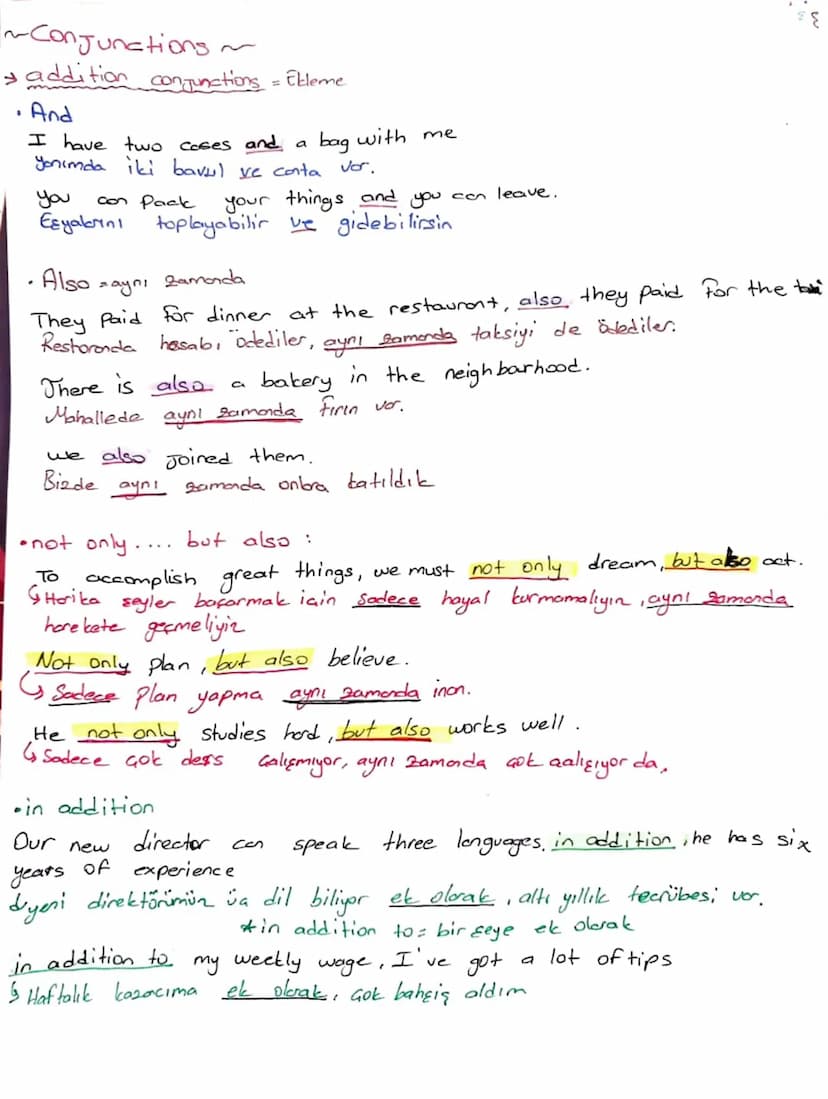 ~Conjunctions~
→ addition conjunctions = Ekleme
• And
I have two cases and a bag with me
Yanımda iki bavul ve canta var.
You can pack your things and you can leave.
Eşyalarını toplayabilir ve gidebilirsin
• Also = aynı zamanda
They paid for dinner at the restaurant, also they paid for the
Restoranda hesabı ödediler, aynı zamanda taksiyi de ödediler.
There is also a bakery in the neighbarhood.
Mahallede aynı zamanda fırın var.
we also joined them.
Bizde aynı zamanda onlara katıldık
• not only.... but also :
To accomplish great things, we must not only dream, but also act.
↳ Harika şeyler başarmak için sadece hayal kurmamalıyın, aynı zamanda
harekete geçmeliyiz
Not only plan, but also believe.
↳ Sadece plan yapma aynı zamanda inan.
He not only studies hard, but also works well.
↳ Sadece çok ders çalışmıyor, aynı zamanda çok çalışıyor da.
• in addition
Our new director can speak three languages. in addition, he has six
years of experience
↳ yeni direktörümün üç dil biliyor ek olarak, altı yıllık tecrübesi var.
* in addition to = bir şeye ek olarak
in addition to my weekly wage, I've got a lot of tips
↳ Haftalık kazancıma ek olarak, çok bahşiş aldım